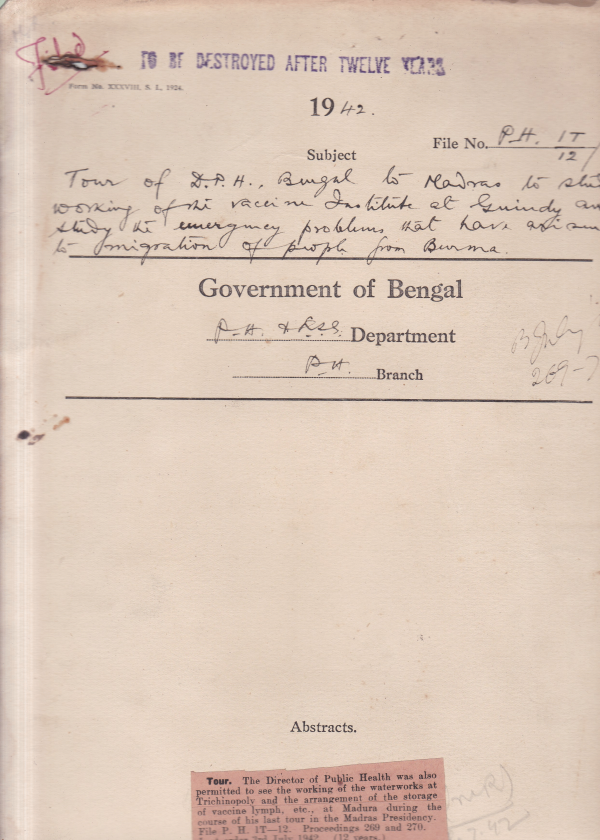 Filed
TO BE DESTROYED AFTER TWELVE YEARS
Form No. XXXVIII, S. I., 1924.
1942.
File No. P.H. 1T/12
Subject
Tour of D.P.H., Bengal to Madras to stu
working of the vaccine Institute at Guindy an
study the emergency problems that have arisen
to migration of people from Burma.
Government of Bengal
P.H. & L.S.G. Department
P.H. Branch
B July
269-7
Abstracts.
Tour. The Director of Public Health was also
permitted to see the working of the waterworks at
Trichinopoly and the arrangement of the storage
of vaccine lymph, etc., at Madura during the
course of his last tour in the Madras Presidency.
File P. H. 1T—12. Proceedings 269 and 270.